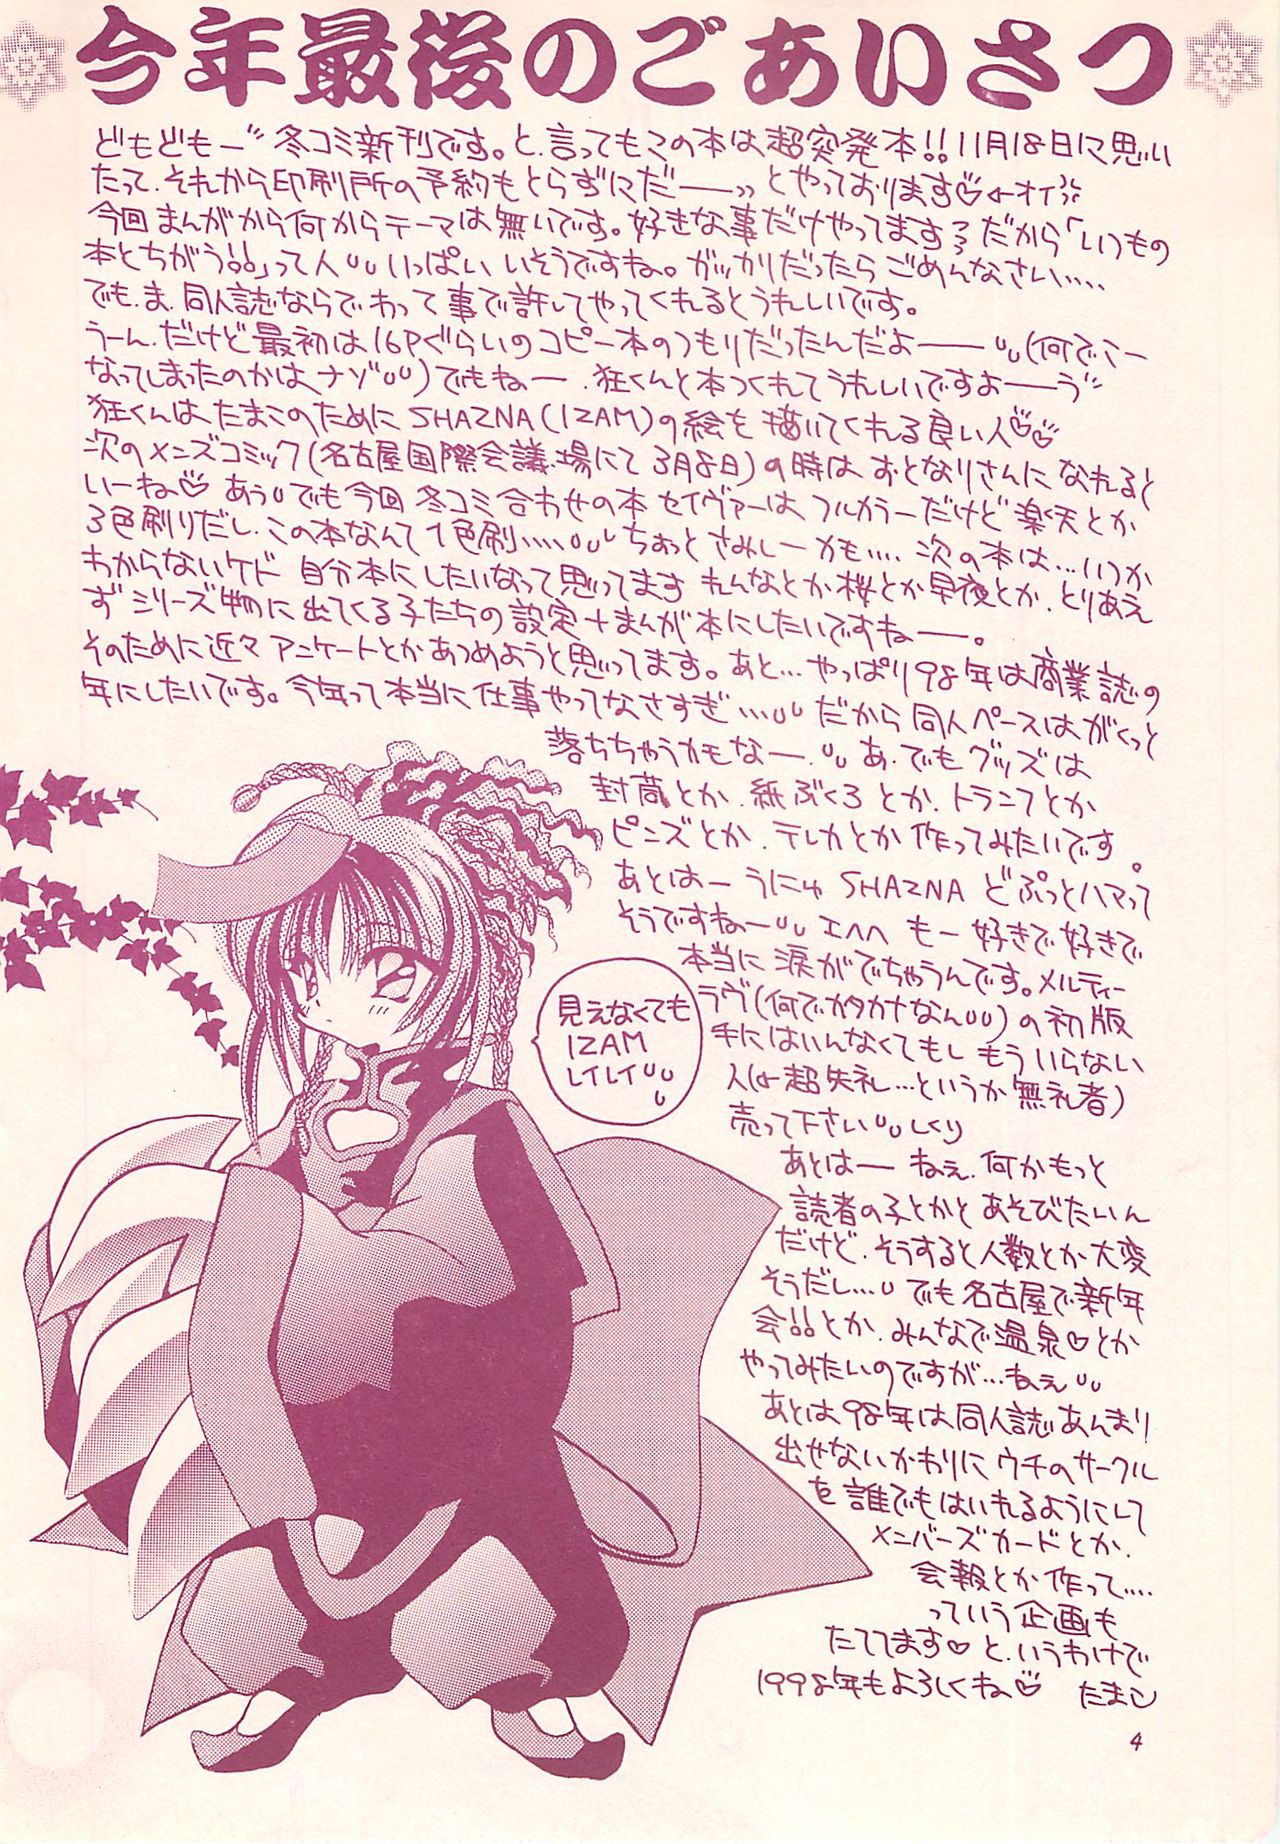 今年最後のごあいさつ
どもどもー゛冬コミ新刊です。と、言ってもこの本は超突発本!!11月18日に思い
たって、それから印刷所の予約もとらずにだー──っっとやっております♡←オイ
今回まんがから何からテーマは無いです。好きな事だけやってます だから「いつもの
本とちがう!!」って人 いっぱい いそうですね。ガッカリだったら ごめんなさい....
でも、ま、同人誌ならでわって事で許してやってくれるとうれしいです。
うーん、だけど最初は16Pぐらいのコピー本のつもりだったんだよー──(何でこー
なってしまったのかは、ナゾ)でもねー、狂くんと本つくれてうれしいですよー──う゛
狂くんは たまこのために SHAZNA(IZAM)の絵を描いてくれる良い人♡♡
次のメンズコミック(名古屋国際会議場にて3月8日)の時は おとなりさんに なれると
いーね♡ あうでも今回 冬コミ合わせの本 セイヴァーは フルカラーだけど楽天とか
3色刷りだし、この本なんて1色刷.....ちょっと さみしーかも.... 次の本は...いつか
わからないケド 自分本にしたいなって思ってます れんなとか桜とか早夜とか、とりあえ
ず シリーズ物に出てくる子たちの設定+まんが本にしたいですねー──。
そのために近々アンケートとかあつめようと思ってます。あと...やっぱり98年は商業誌の
年にしたいです。今年って本当に仕事やってなさすぎ...だから同人ペースはがくっと
落ちちゃうカモなー、あ、でもグッズは
封筒とか、紙ぶくろとか、トランプとか
ピンズとか、テレカとか 作ってみたいです。
あとはー うにゅ SHAZNA どぷっとハマって
そうですねー エヘヘ もー 好きで好きで
本当に涙がでちゃうんです。メルティー
ラヴ(何でカタカナなん)の初版
手にはいんなくても もういらない
人(←超失礼...というか無礼者)
売って下さい しくり
あとはー ねぇ、何かもっと
読者の子とかと あそびたいん
だけど、そうすると人数とか大変
そうだし...でも名古屋で新年
会!!とか、みんなで温泉♡とか
やってみたいのですが...ねぇ
あとは98年は同人誌あんまり
出せないかわりに ウチのサークル
を誰でもはいれるようにして
メンバーズカードとか、
会報とか作って....
っていう企画も
たててます♡ と、いうわけで
1998年もよろしくね♡ たまこ
見えなくても
IZAM
レイレイ
4